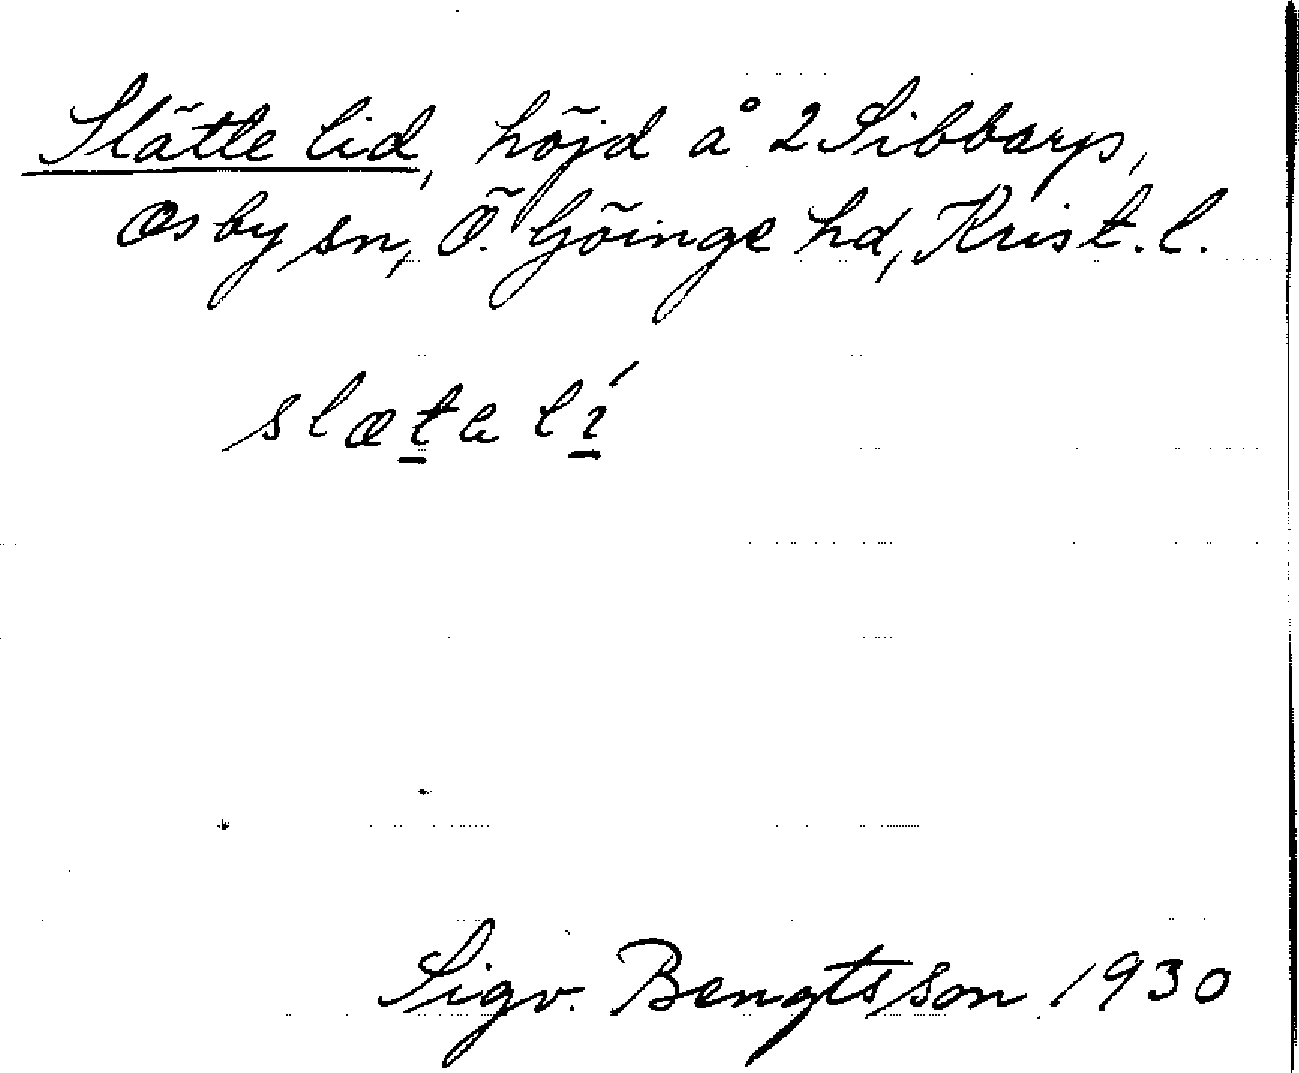 Slätte lid, höjd å 2 Sibbarp,
Osby sn, Ö. Göinge hd, Krist. l.
slætə lí
Sigv. Bengtsson 1930